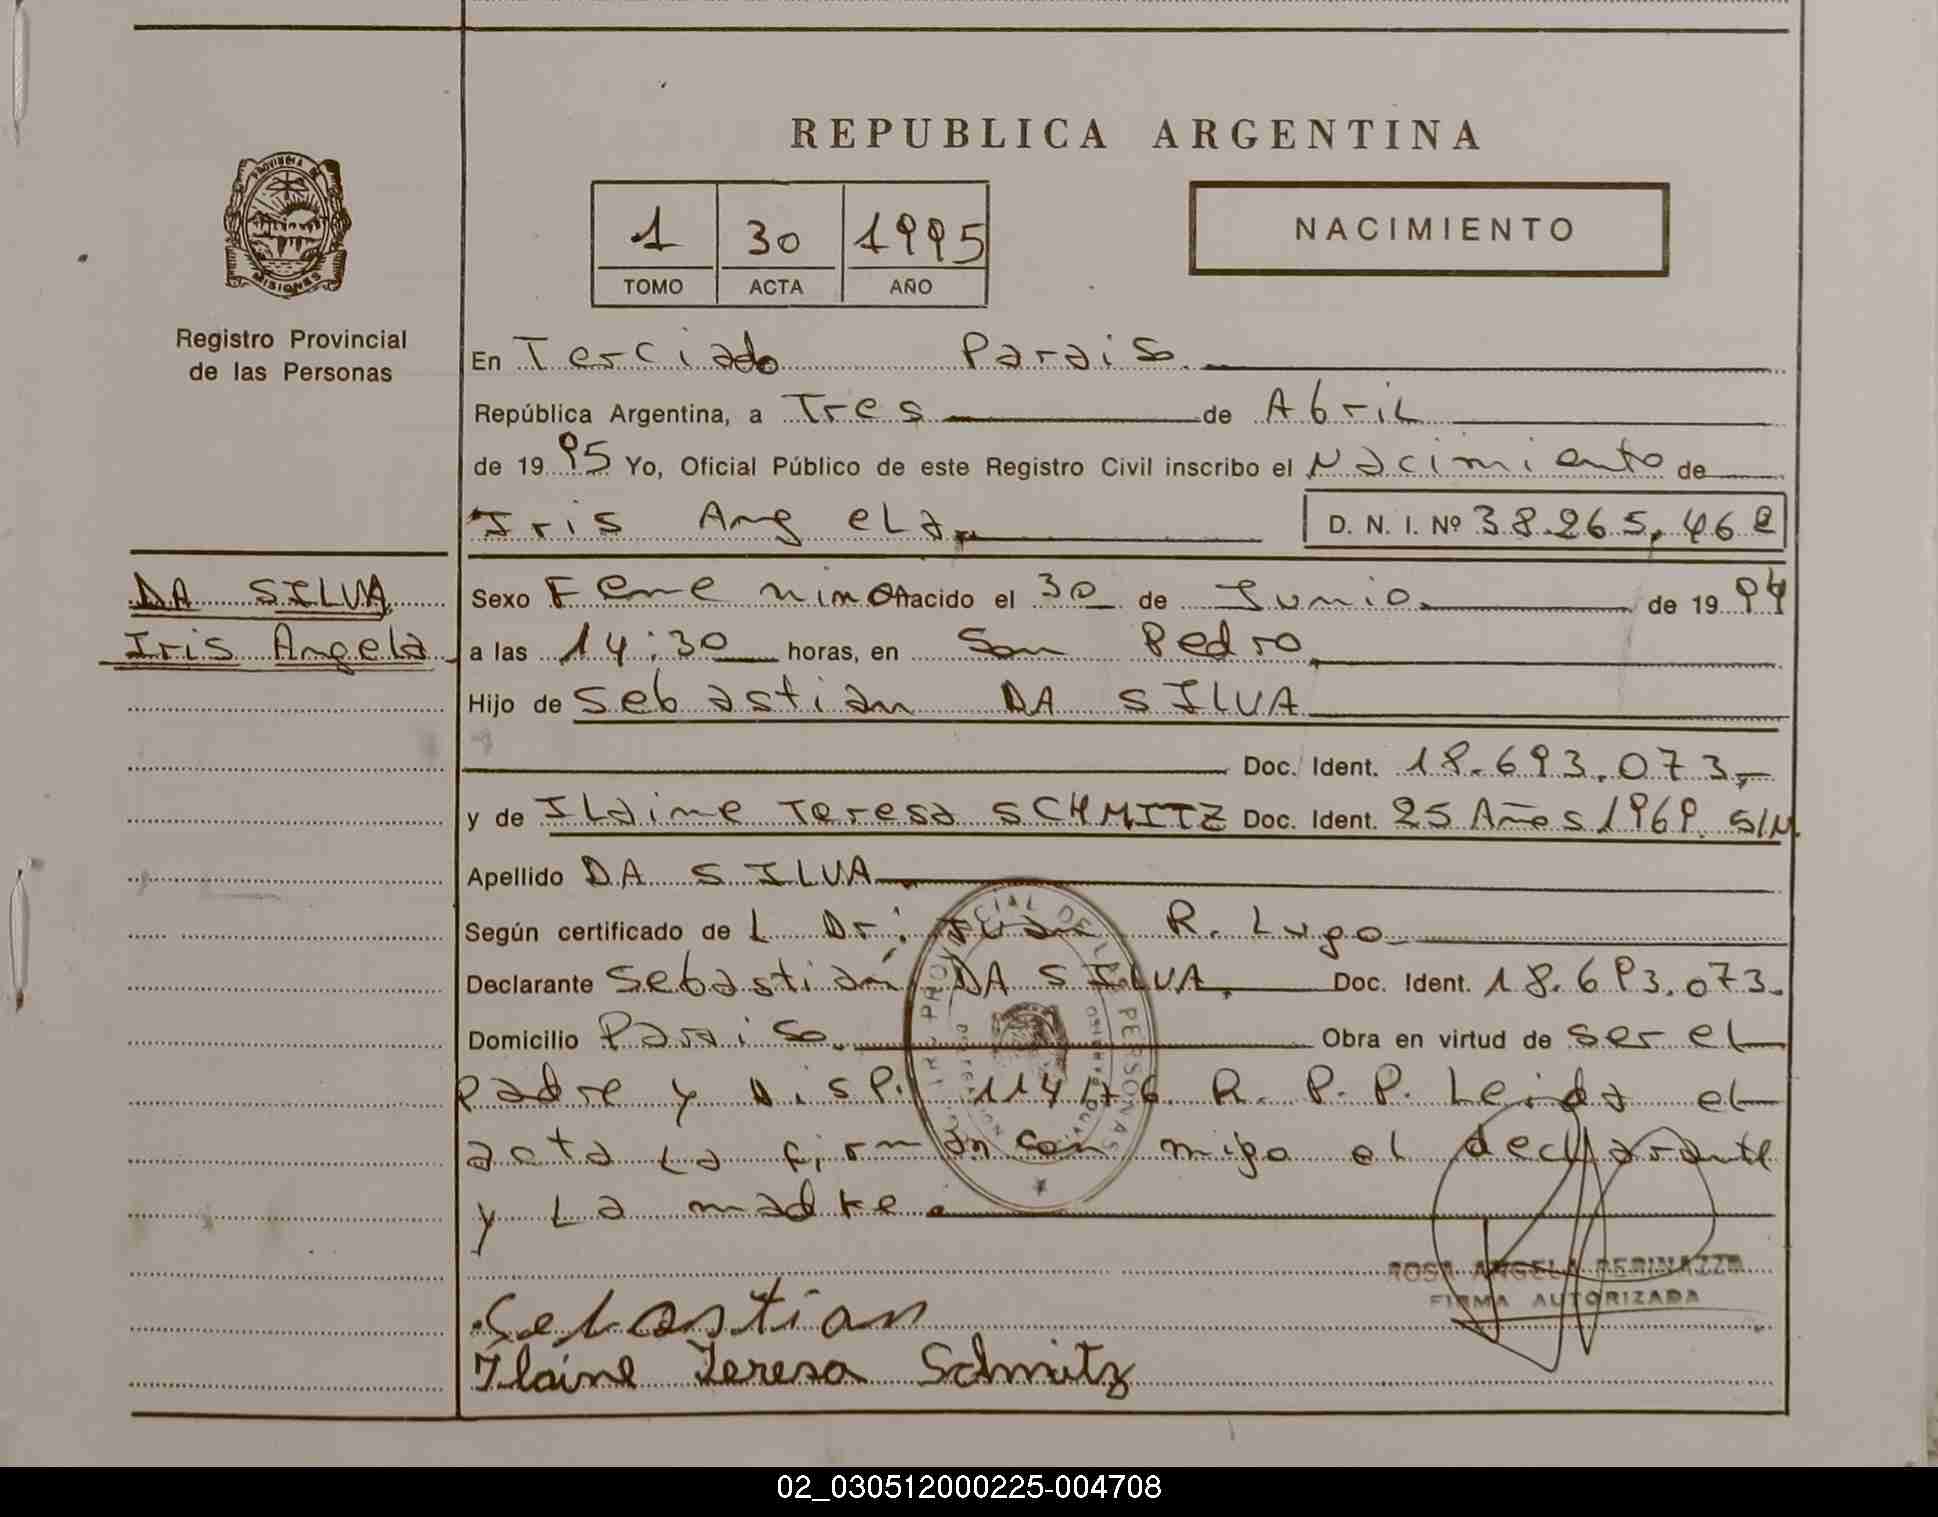 REPUBLICA ARGENTINA
PROVINCIA DE
MISIONES
Registro Provincial
de las Personas
1 30 1995
TOMO ACTA AÑO
NACIMIENTO
En Terciado Paraiso.
República Argentina, a Tres de Abril
de 1995 Yo, Oficial Público de este Registro Civil inscribo el Nacimiento de
Iris Angela. D. N. I. Nº 38.265.462
DA SILVA
Iris Angela
Sexo Femenino nacido el 30 de Junio de 1994
a las 14:30 horas, en San Pedro
Hijo de Sebastian DA SILVA
Doc. Ident. 18.693.073
y de Ilaine Teresa SCHMITZ Doc. Ident. 25 Años 1969 S/N
Apellido DA SILVA
Según certificado de L Dr: Juan R. Lugo
Declarante Sebastian DA SILVA. Doc. Ident. 18.693.073.
Domicilio Paraiso. Obra en virtud de ser el
padre y Disp. 114/76 R. P. P. Leida el
acta La firman con migo el declarante
y La madre.
PROVINCIAL DE LAS PERSONAS
DELEGACION
ROSA ANGELA PERINAZZO
FIRMA AUTORIZADA
Sebastian
Ilaine Teresa Schmitz
02_030512000225-004708